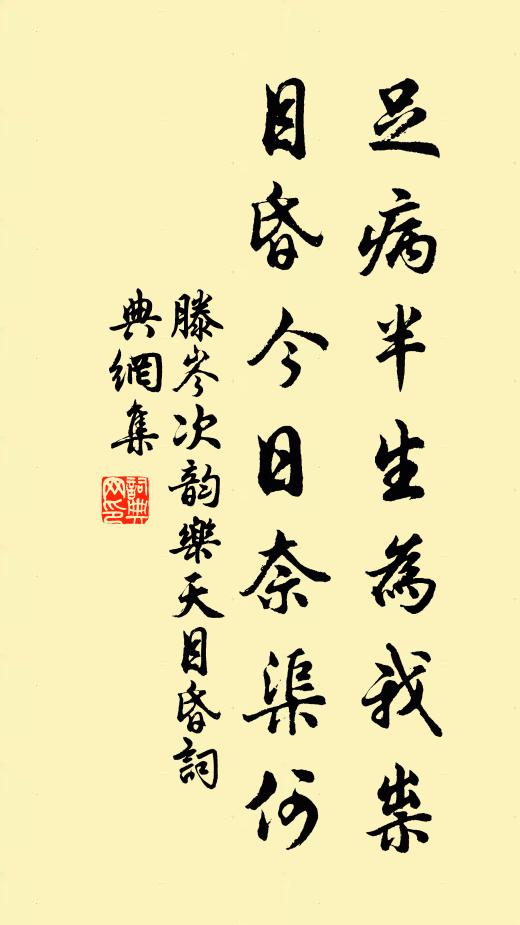 足病半生為我祟
目昏今日奈渠何
滕岑次韵樂天目昏詞
典網集
詞典网印